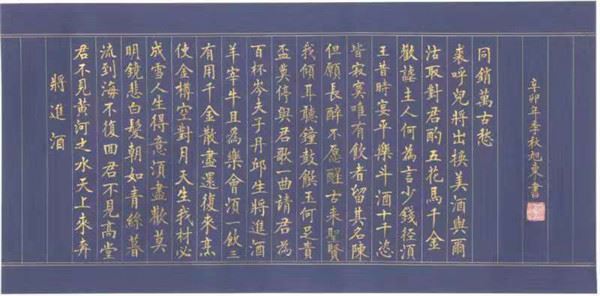 將進酒
君不見黃河之水天上來奔
流到海不復回君不見高堂
明鏡悲白髮朝如青絲暮
成雪人生得意須盡歡莫
使金樽空對月天生我材必
有用千金散盡還復來烹
羊宰牛且為樂會須一飲三
百杯岑夫子丹邱生將進酒
盃莫停與君歌一曲請君為
我傾耳聽鐘鼓饌玉何足貴
但願長醉不愿醒古來聖賢
皆寂寞唯有飲者留其名陳
王昔時宴平樂斗酒十千恣
歡謔主人何為言少錢徑須
沽取對君酌五花馬千金
裘呼兒將出換美酒與爾
同銷萬古愁
辛卯年季秋旭東書